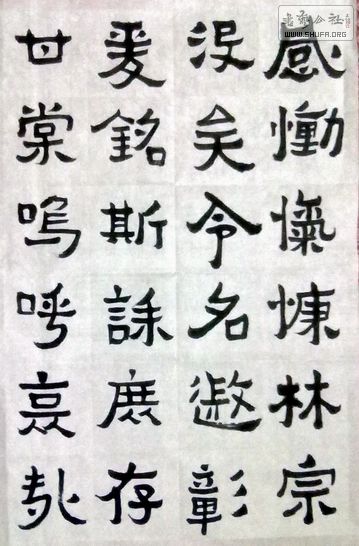 感慟愾悚林宗
没矣令名遐彰
爰銘斯誄庶存
甘棠嗚呼哀哉
WWW.SHUFA.ORG